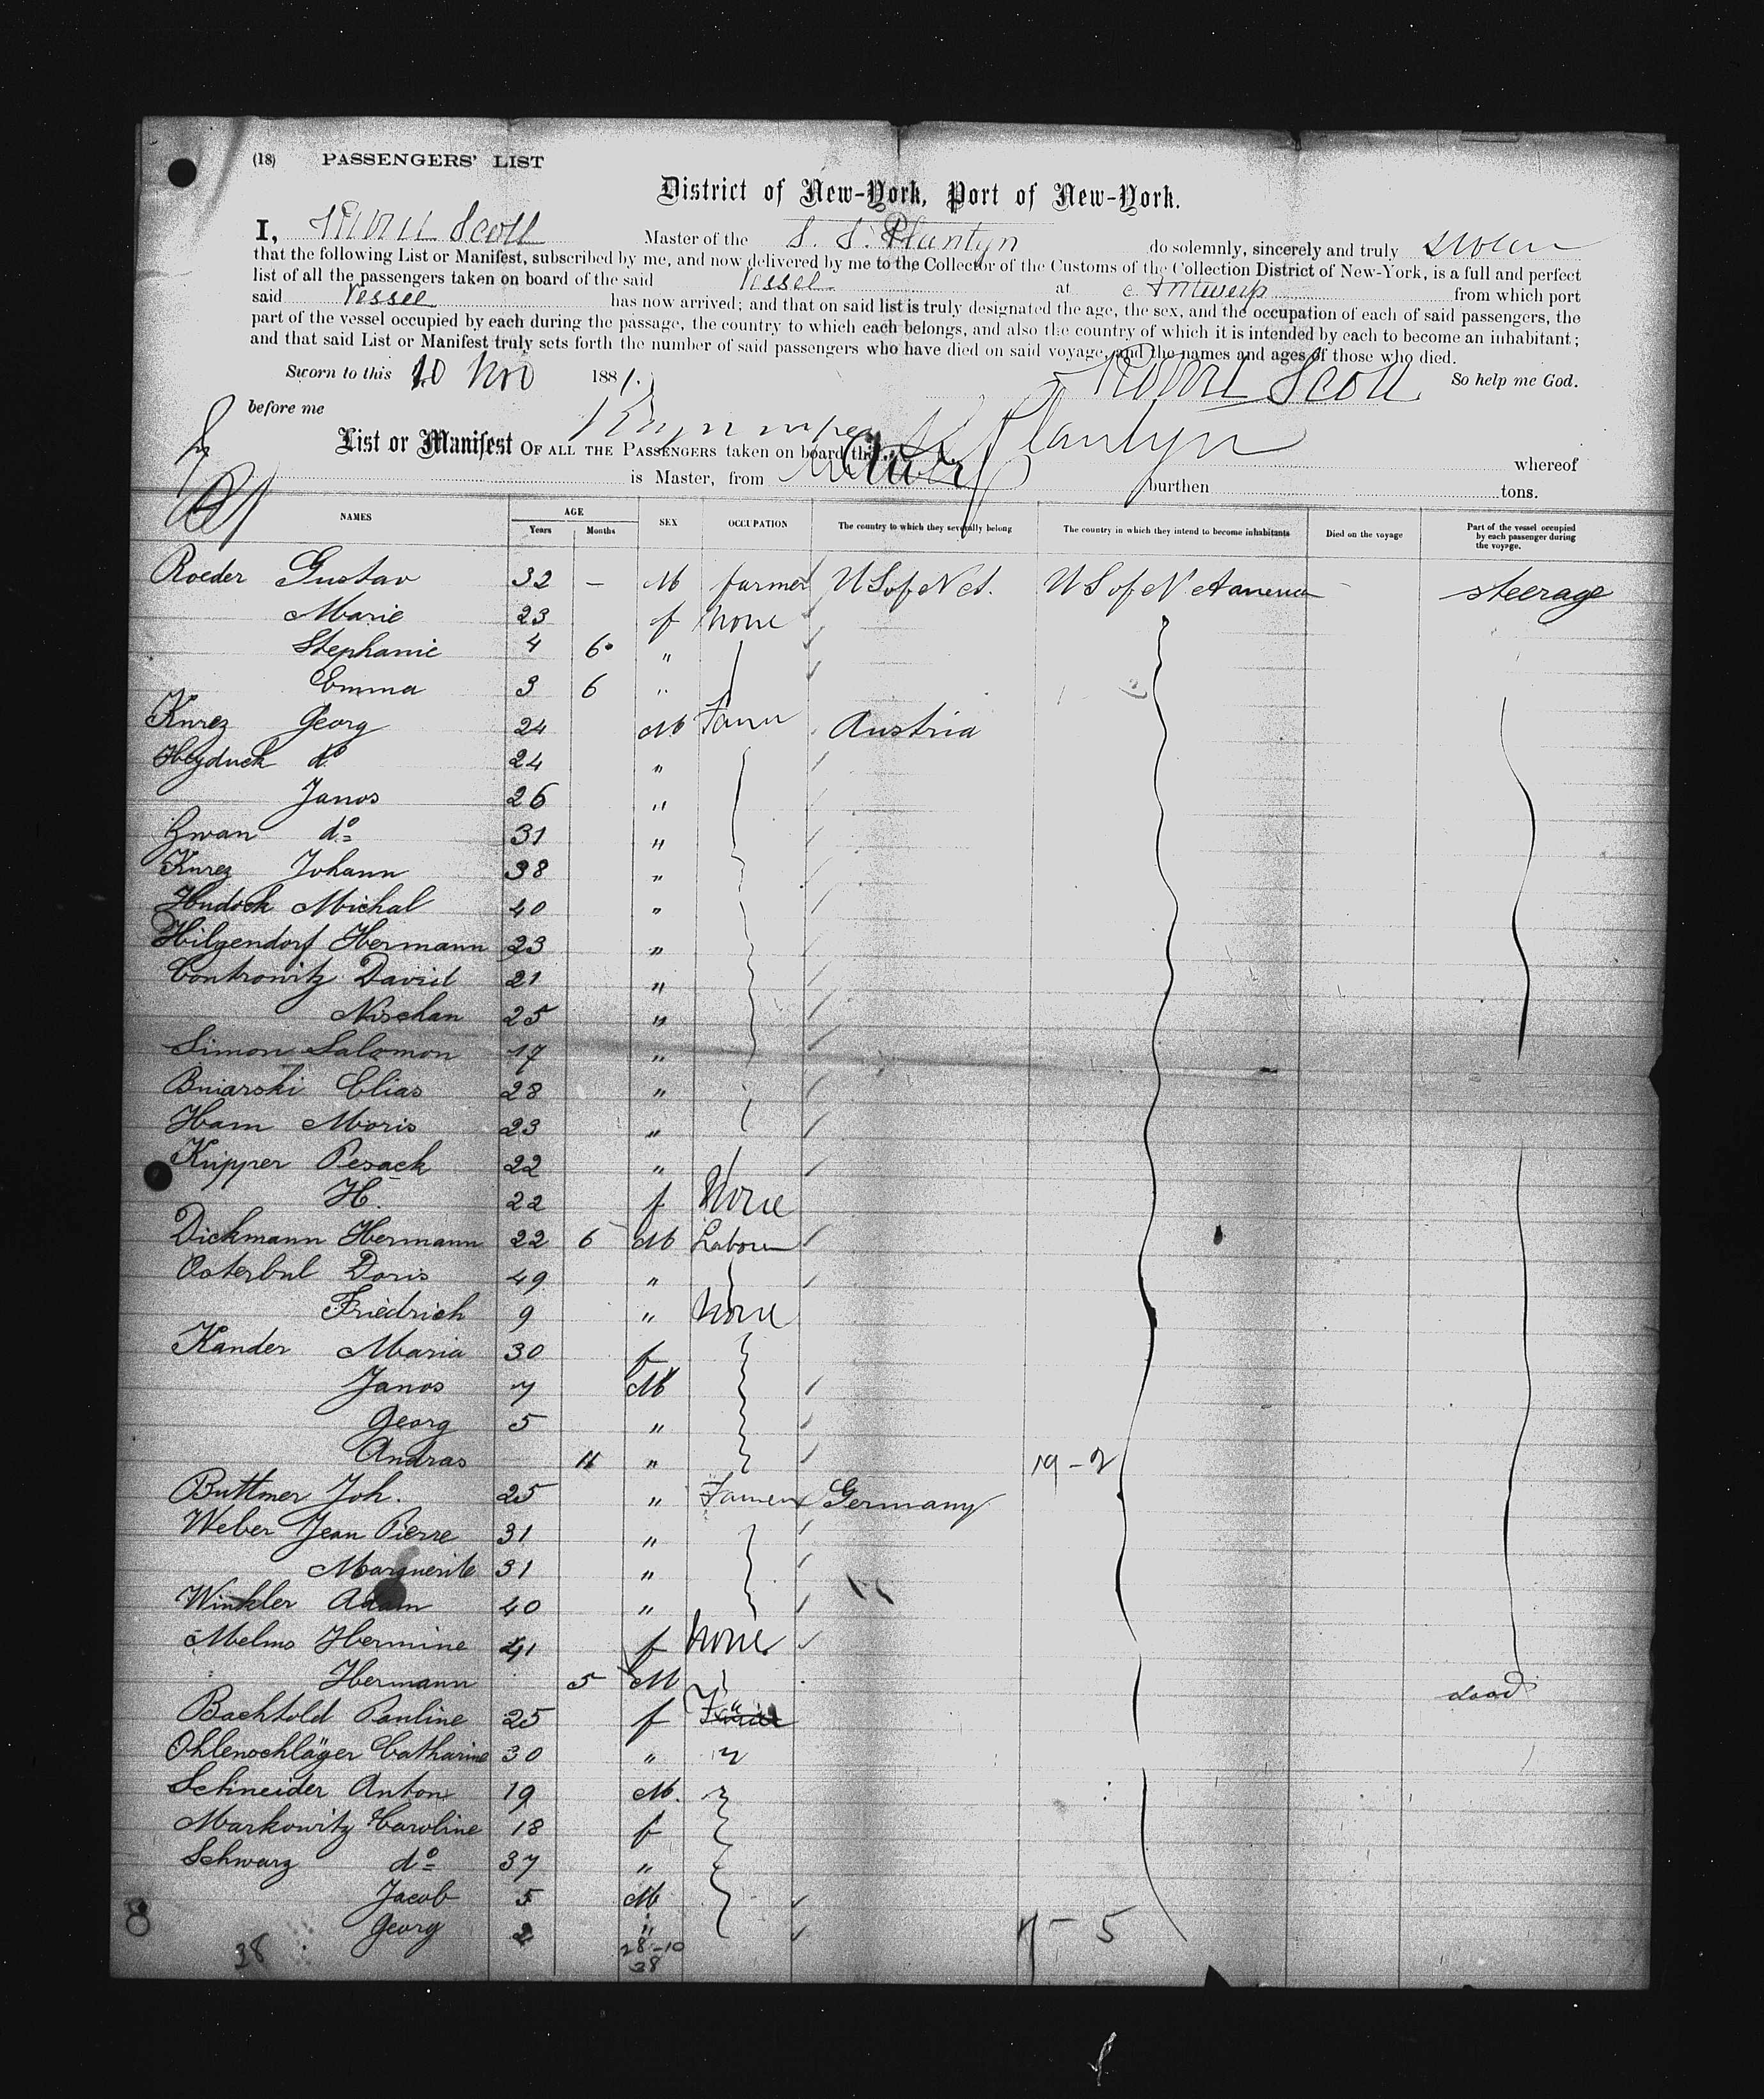 (18) PASSENGERS' LIST
District of New-York, Port of New-York.
I, Robert Scott Master of the S. S. Plantyn do solemnly, sincerely and truly swear
that the following List or Manifest, subscribed by me, and now delivered by me to the Collector of the Customs of the Collection District of New-York, is a full and perfect
list of all the passengers taken on board of the said Vessel at Antwerp from which port
said Vessel has now arrived; and that on said list is truly designated the age, the sex, and the occupation of each of said passengers, the
part of the vessel occupied by each during the passage, the country to which each belongs, and also the country of which it is intended by each to become an inhabitant;
and that said List or Manifest truly sets forth the number of said passengers who have died on said voyage, and the names and ages of those who died.
Sworn to this 10 Nov 1881. Robert Scott So help me God.
before me
List or Manifest OF ALL THE PASSENGERS taken on board the Plantyn whereof
is Master, from burthen tons.
NAMES AGE Years Months SEX OCCUPATION The country to which they severally belong The country in which they intend to become inhabitants Died on the voyage Part of the vessel occupied by each passenger during the voyage.
Roeder Gustav 32 — M farmer U S of N A. U S of N America steerage
Marie 23 f none
Stephanie 4 6 "
Emma 3 6 "
Knrez Georg 24 M Farm Austria
Heyduck do 24 "
Janos 26 "
Gwan do 31 "
Knrez Johann 38 "
Hudock Michal 40 "
Hilgendorf Hermann 23 "
Controwitz David 21 "
Nischan 25 "
Simon Salomon 17 "
Bniarski Elias 28 "
Ham Moris 23 "
Kupper Pesack 22 "
H. 22 f None
Dickmann Hermann 22 6 M Laborer
Osterbul Doris 49 "
Friedrich 9 " None
Kander Maria 30 f
Janos 7 M
Georg 5 "
Andras 11 " 19-2
Buttmer Joh. 25 " Farmer Germany
Weber Jean Pierre 31 "
Marguerite 31 "
Winkler Adam 40 "
Melms Hermine 41 f None
Hermann 5 M
Bachtold Pauline 25 f
Ohlenschläger Catharine 30 "
Schneider Anton 19 M.
Markowitz Caroline 18 f
Schwarz do 37 "
Jacob 5 M
Georg 2 " 5
38 28-10
38
8